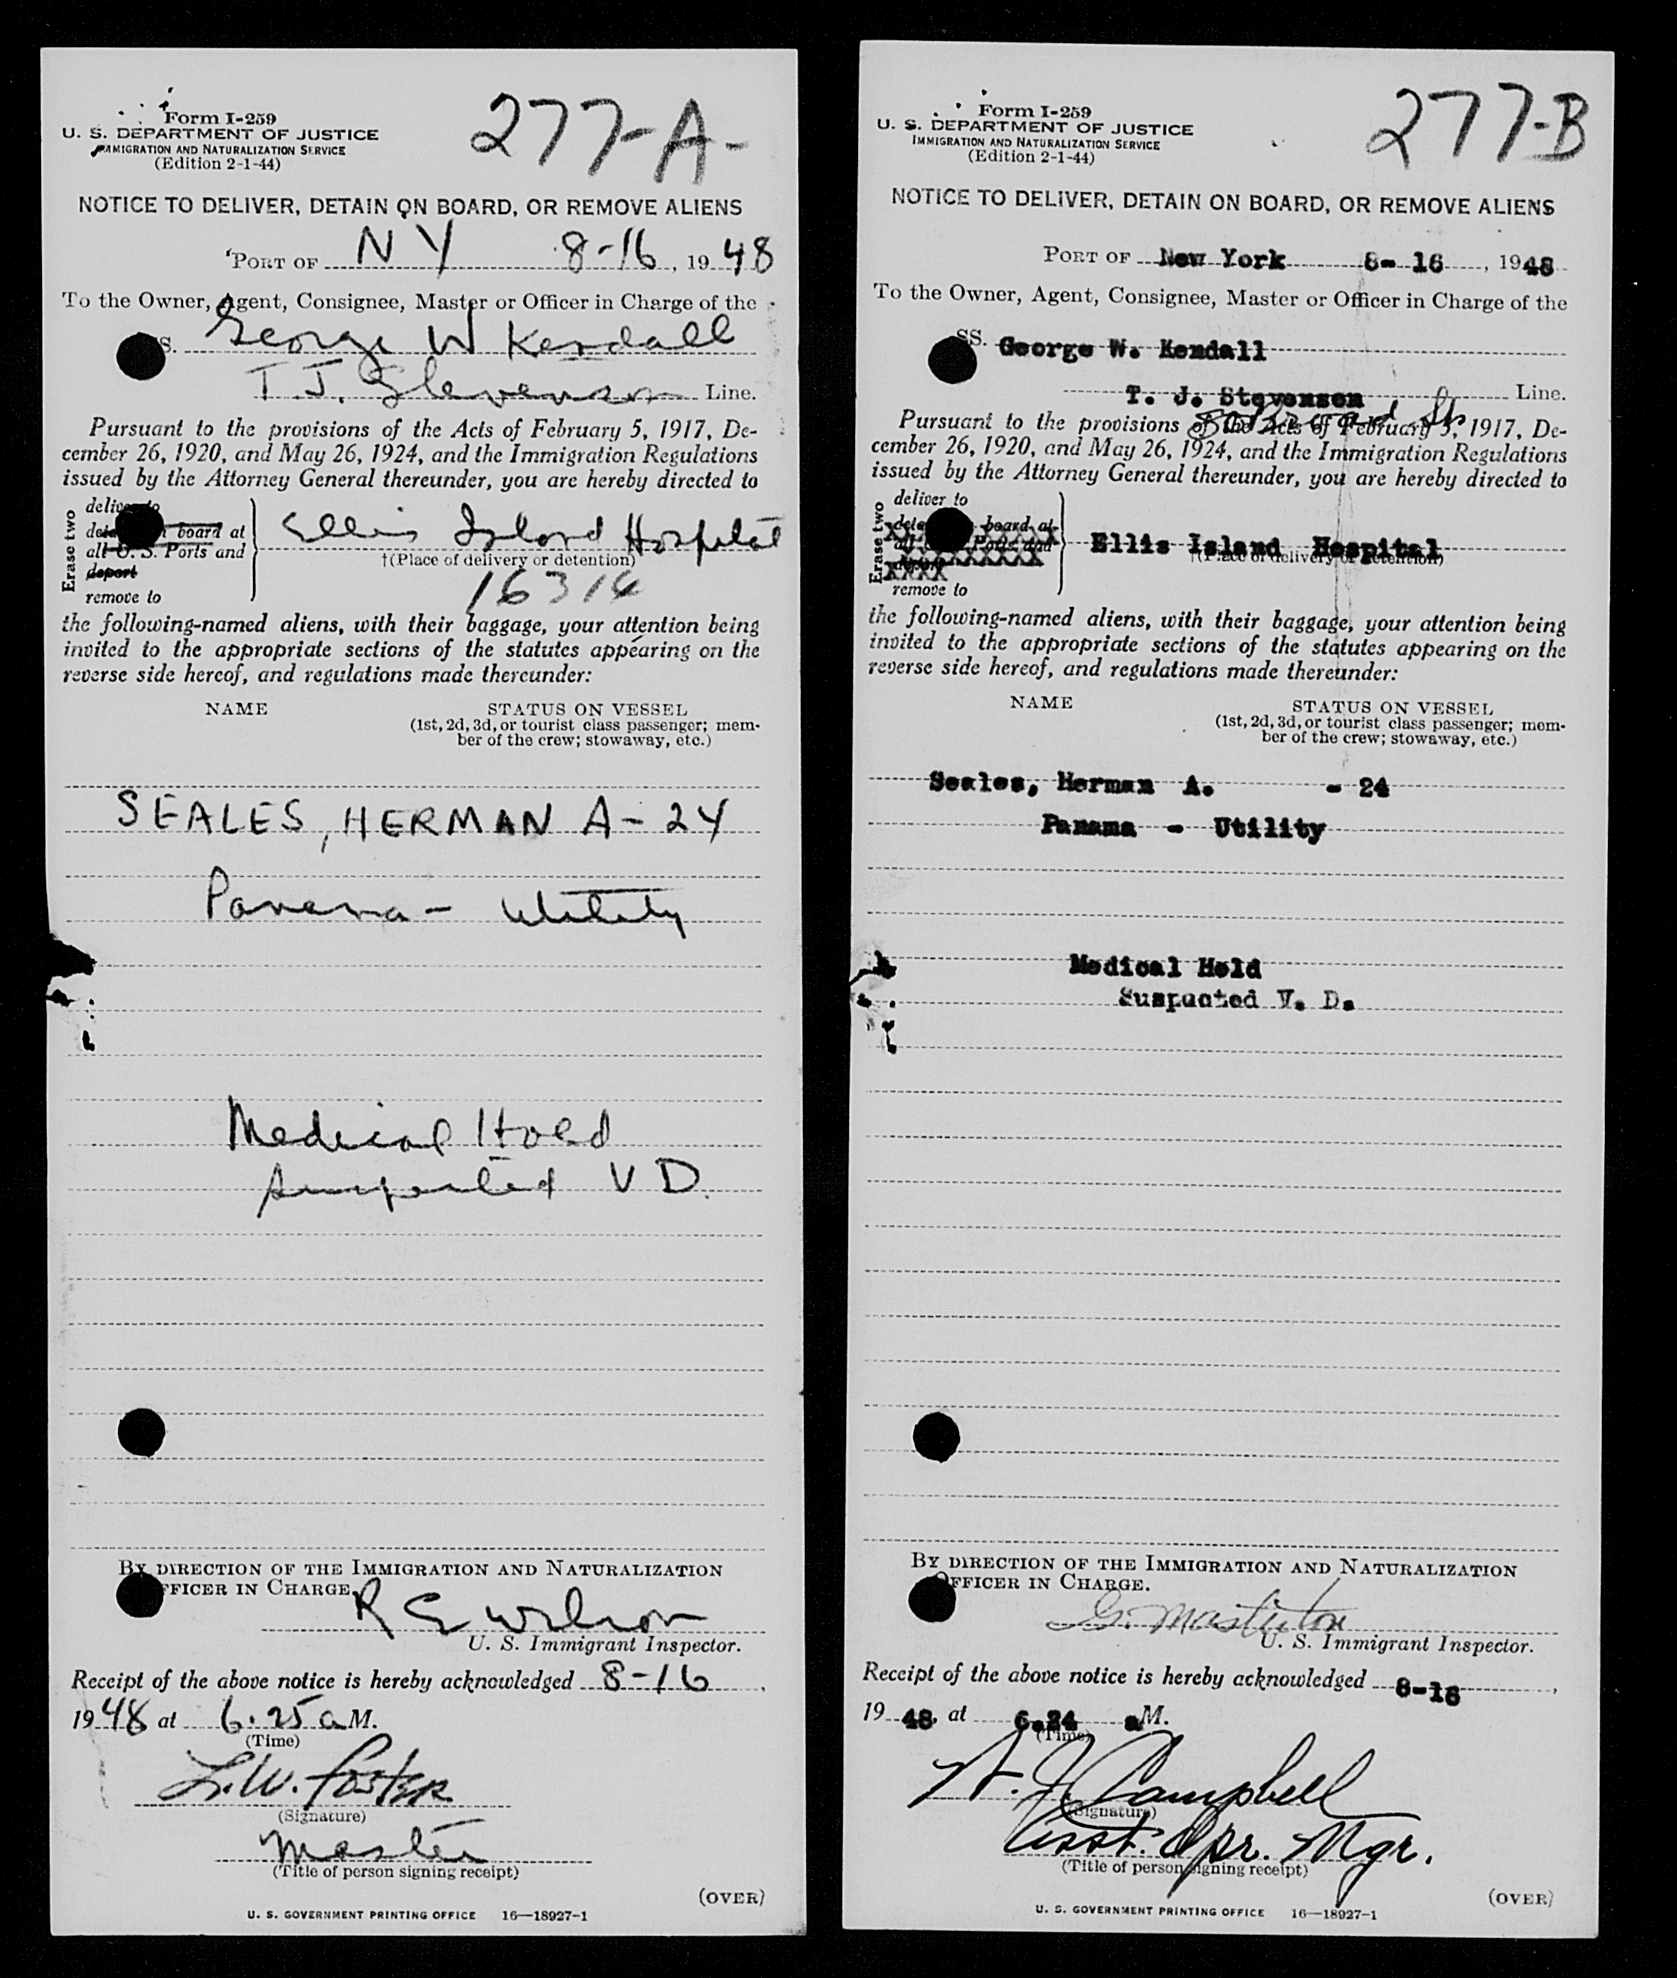 Form I-259
U. S. DEPARTMENT OF JUSTICE
IMMIGRATION AND NATURALIZATION SERVICE
(Edition 2-1-44)
277-A-
NOTICE TO DELIVER, DETAIN ON BOARD, OR REMOVE ALIENS
PORT OF N Y 8-16, 1948
To the Owner, Agent, Consignee, Master or Officer in Charge of the
S. George W Kendall
T. J. Stevenson Line.
Pursuant to the provisions of the Acts of February 5, 1917, De-
cember 26, 1920, and May 26, 1924, and the Immigration Regulations
issued by the Attorney General thereunder, you are hereby directed to
Erase two
deliver to
board at
all U. S. Ports and
deport
remove to
Ellis Island Hospital
†(Place of delivery or detention)
16314
the following-named aliens, with their baggage, your attention being
invited to the appropriate sections of the statutes appearing on the
reverse side hereof, and regulations made thereunder:
NAME STATUS ON VESSEL
(1st, 2d, 3d, or tourist class passenger; mem-
ber of the crew; stowaway, etc.)
SEALES, HERMAN A - 24
Panama - Utility
Medical Hold
Suspected V D.
BY DIRECTION OF THE IMMIGRATION AND NATURALIZATION
OFFICER IN CHARGE.
R E Wilson
U. S. Immigrant Inspector.
Receipt of the above notice is hereby acknowledged 8-16,
1948 at 6.25 a M.
(Time)
L. W. Foster
(Signature)
Master
(Title of person signing receipt)
(OVER)
U. S. GOVERNMENT PRINTING OFFICE 16—18927-1
Form I-259
U. S. DEPARTMENT OF JUSTICE
IMMIGRATION AND NATURALIZATION SERVICE
(Edition 2-1-44)
277-B
NOTICE TO DELIVER, DETAIN ON BOARD, OR REMOVE ALIENS
PORT OF New York 8- 16, 1948
To the Owner, Agent, Consignee, Master or Officer in Charge of the
SS. George W. Kendall
T. J. Stevenson Line.
Pursuant to the provisions of the Acts of February 5, 1917, De-
cember 26, 1920, and May 26, 1924, and the Immigration Regulations
issued by the Attorney General thereunder, you are hereby directed to
Erase two
deliver to
board at
Ports and
remove to
Ellis Island Hospital
†(Place of delivery or detention)
the following-named aliens, with their baggage, your attention being
invited to the appropriate sections of the statutes appearing on the
reverse side hereof, and regulations made thereunder:
NAME STATUS ON VESSEL
(1st, 2d, 3d, or tourist class passenger; mem-
ber of the crew; stowaway, etc.)
Seales, Herman A. - 24
Panama - Utility
Medical Hold
Suspected V. D.
BY DIRECTION OF THE IMMIGRATION AND NATURALIZATION
OFFICER IN CHARGE.
U. S. Immigrant Inspector.
Receipt of the above notice is hereby acknowledged 8-16,
1948, at 6.24 aM.
(Time)
Campbell
(Signature)
Asst. Opr. Mgr.
(Title of person signing receipt)
(OVER)
U. S. GOVERNMENT PRINTING OFFICE 16—18927-1